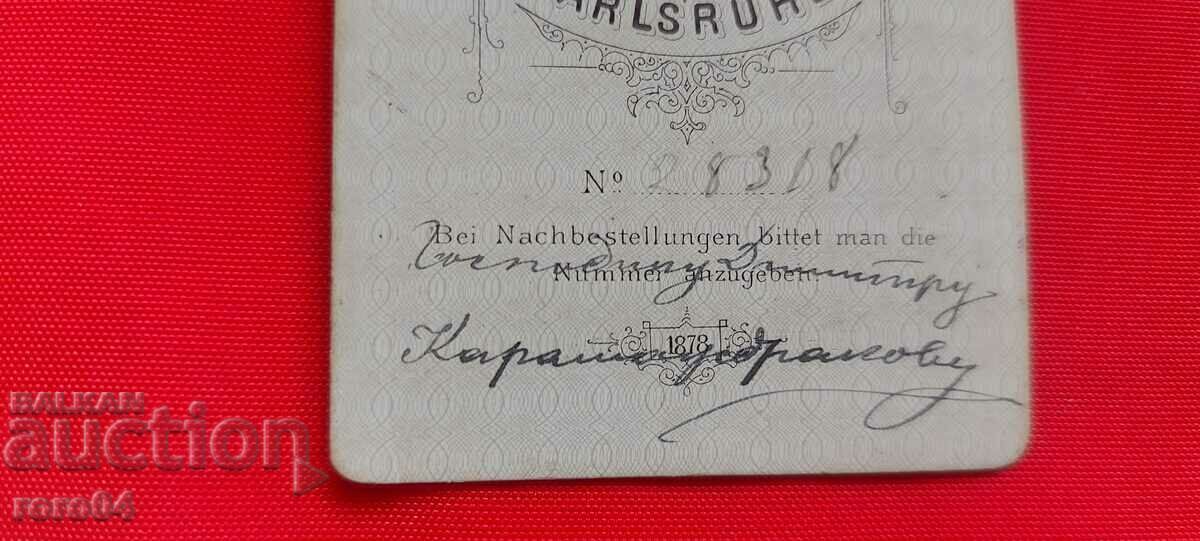 KARLSRUHE
Nº 28318
Bei Nachbestellungen bittet man die
Господину Димитру
Nummer anzugeben.
1878
BALKAN
auction
roro04